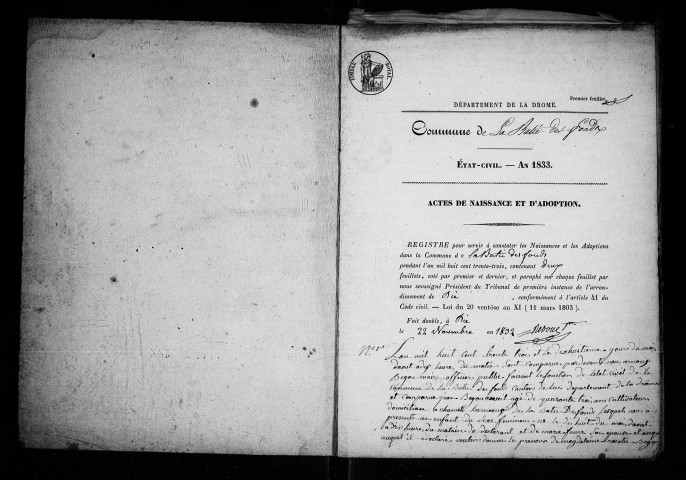 TIMBRE ROYAL
Premier feuillet
DÉPARTEMENT DE LA DROME.
Commune de La Batie des fonds
ÉTAT-CIVIL. — AN 1833.
ACTES DE NAISSANCE ET D'ADOPTION.
REGISTRE pour servir à constater les Naissances et les Adoptions
dans la Commune de La Batie des fonds
pendant l'an mil huit cent trente-trois, contenant deux
feuillets, coté par premier et dernier, et paraphé sur chaque feuillet par
nous soussigné Président du Tribunal de première instance de l'arron-
dissement de Die , conformément à l'article 41 du
Code civil. — Loi du 20 ventôse an XI (11 mars 1803).
Fait double, à Die
le 22 Novembre en 1832
L'an mil huit cent trente trois et le dixhuitieme jour du mois
daout a dix heure du matin sont comparu pardevant nous arnaux
Begou maire officier public faisant les fonction de létat civil de la
commune de la Batie des fond canton de Luc departement de la drome
est comparu jean Begou agé de quarante trois ans cultivateur
domicilier a hameau de la Batie Desfond Lequels nous a
presenté un enfant du sexe feminin né le dix huit du mois daout
a dix heure du matin du declarant et de marie faure son epouse et auquel
auquel il a declaré vouloir donner le prenoms de magdelaine Begou